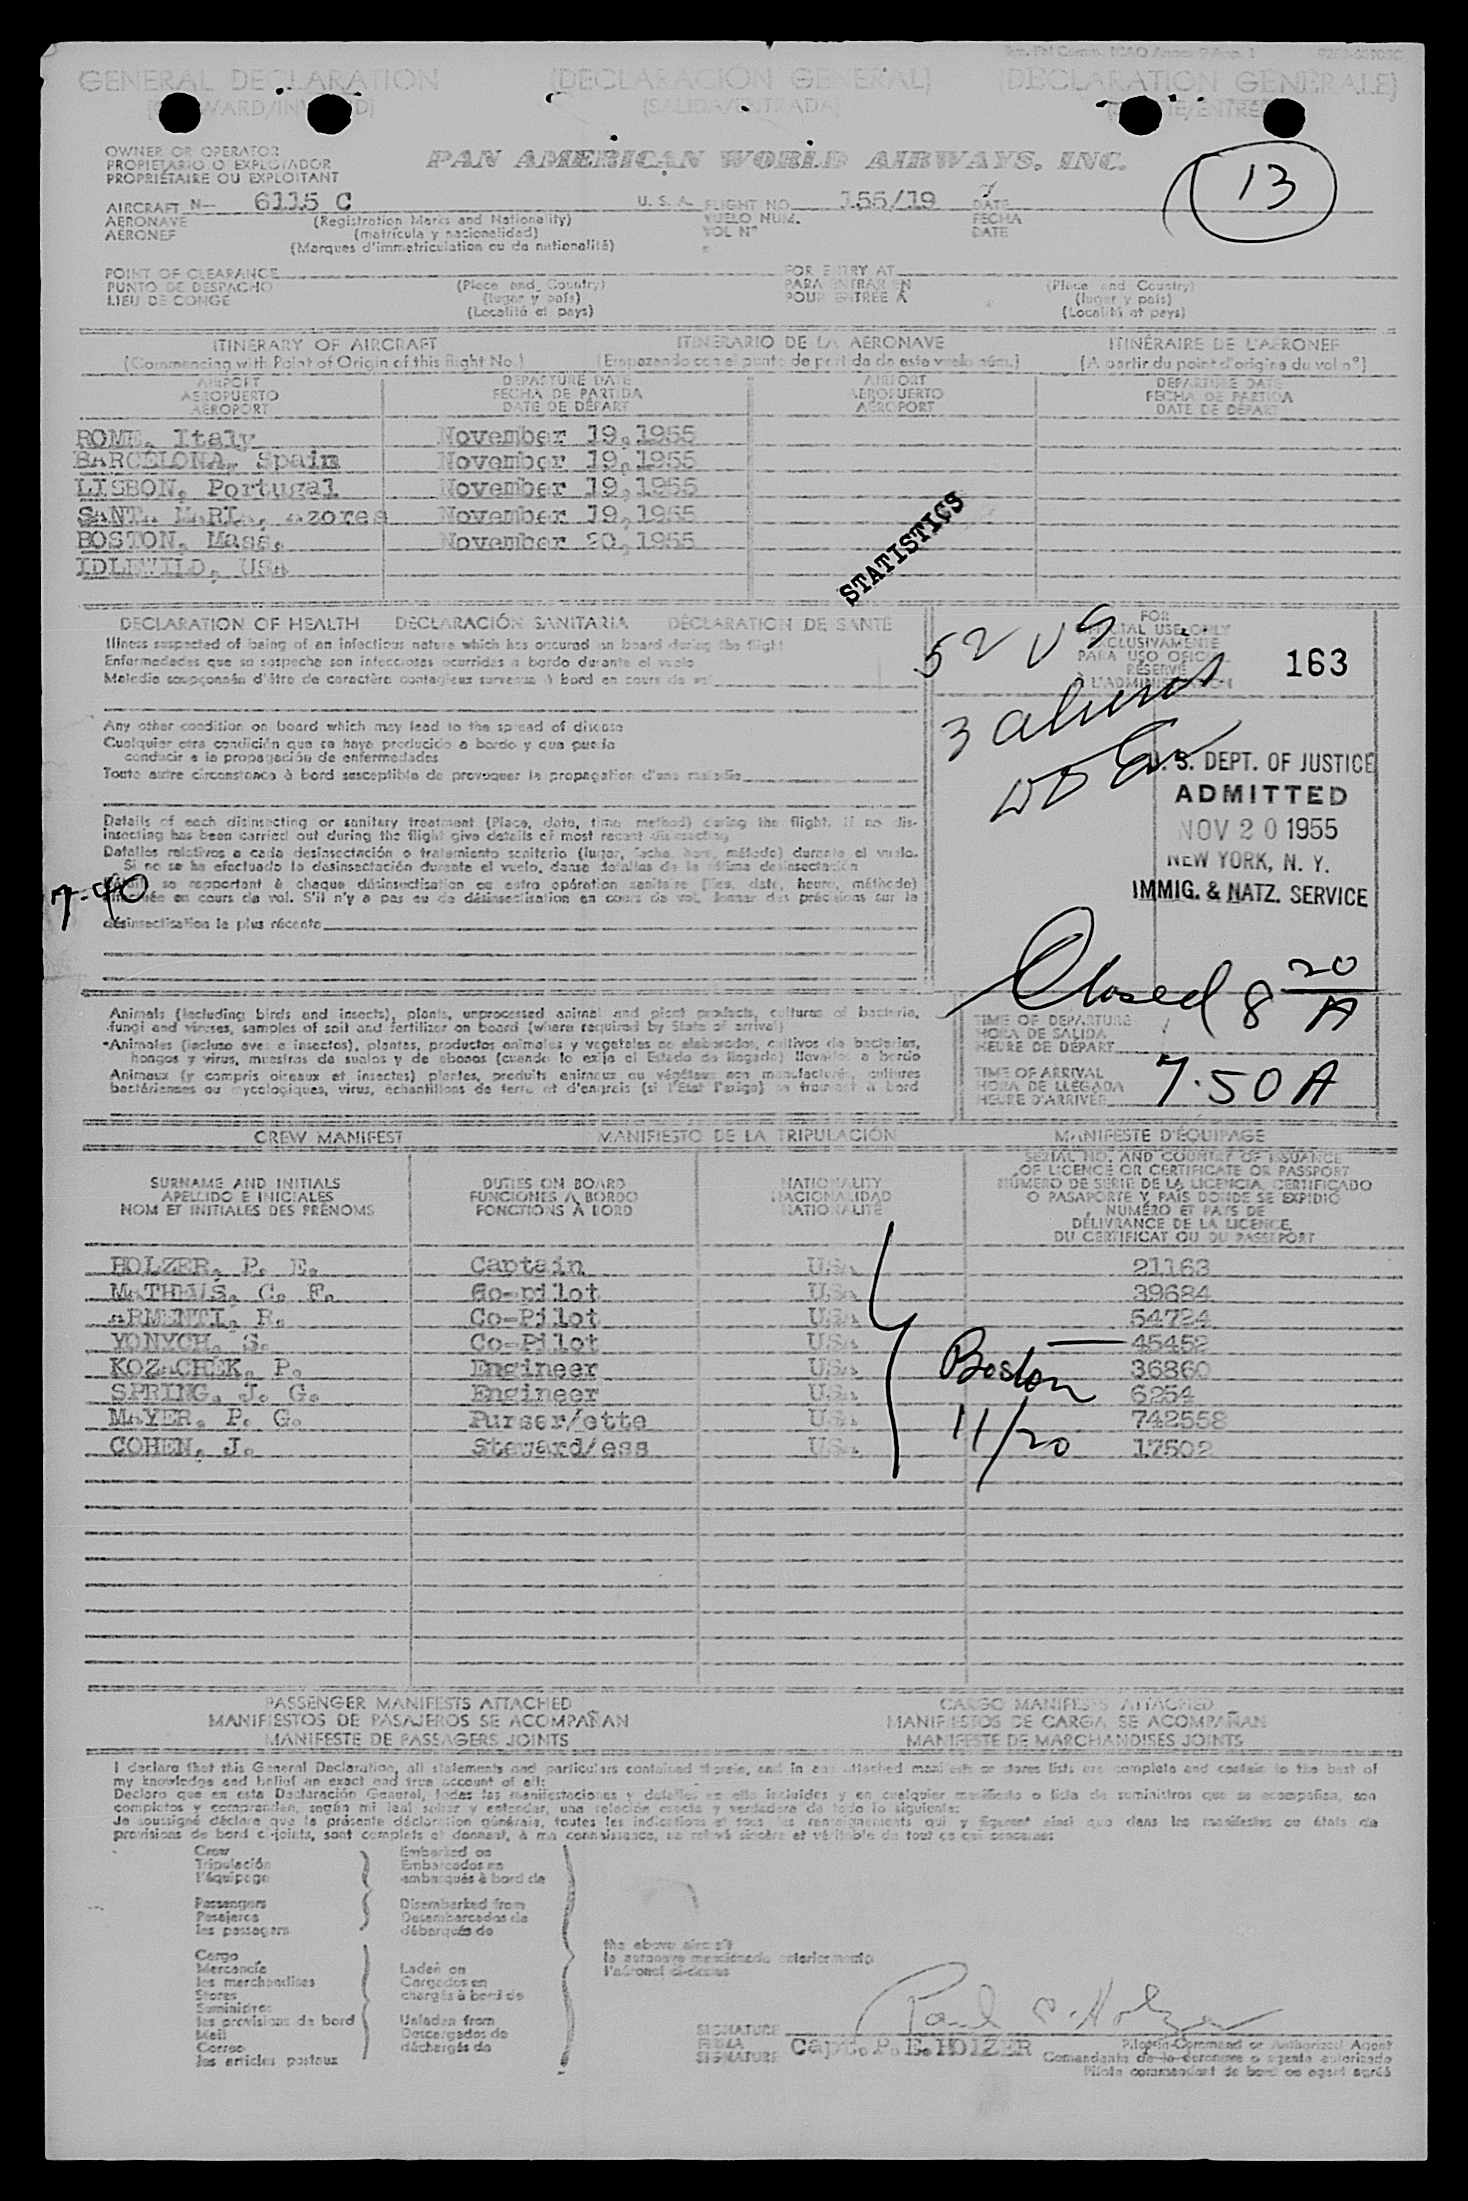 GENERAL DECLARATION (DECLARACION GENERAL) (DECLARATION GENERALE)
(SALIDA/ENTRADA)
OWNER OR OPERATOR
PROPIETARIO O EXPLOTADOR
PROPRIÉTAIRE OU EXPLOITANT
PAN AMERICAN WORLD AIRWAYS, INC.
13
AIRCRAFT N— 6115 C U. S. A. FLIGHT NO. 155/19 DATE
AERONAVE (Registration Marks and Nationality) VUELO NUM. FECHA
AÉRONEF (matrícula y nacionalidad) VOL N° DATE
(Marques d'immatriculation ou de nationalité)
POINT OF CLEARANCE FOR ENTRY AT
PUNTO DE DESPACHO (Place and Country) PARA ENTRAR EN (Place and Country)
LIEU DE CONGÉ (lugar y país) POUR ENTRÉE À (lugar y país)
(Localité et pays) (Localité et pays)
ITINERARY OF AIRCRAFT ITINERARIO DE LA AERONAVE ITINÉRAIRE DE L'AÉRONEF
(Commencing with Point of Origin of this flight No.) (Empezando con el punto de partida de este vuelo núm.) (A partir du point d'origine du vol n°)
AIRPORT DEPARTURE DATE AIRPORT DEPARTURE DATE
AEROPUERTO FECHA DE PARTIDA AEROPUERTO FECHA DE PARTIDA
AÉROPORT DATE DE DÉPART AÉROPORT DATE DE DÉPART
ROME, Italy November 19, 1955
BARCELONA, Spain November 19, 1955
LISBON, Portugal November 19, 1955
SANTA MARIA, Azores November 19, 1955
BOSTON, Mass. November 20, 1955
IDLEWILD, USA
STATISTICS
DECLARATION OF HEALTH DECLARACIÓN SANITARIA DÉCLARATION DE SANTÉ
Illness suspected of being of an infectious nature which has occurred on board during the flight
Enfermedades que se sospeche son infecciosas ocurridas a bordo durante el vuelo
Maladie soupçonnée d'être de caractère contagieux survenue à bord en cours de vol
Any other condition on board which may lead to the spread of disease
Cualquier otra condición que se haya producido a bordo y que pueda
conducir a la propagación de enfermedades
Toute autre circonstance à bord susceptible de provoquer la propagation d'une maladie
Details of each disinsecting or sanitary treatment (Place, date, time, method) during the flight. If no dis-
insecting has been carried out during the flight give details of most recent disinsecting
Detalles relativos a cada desinsectación o tratamiento sanitario (lugar, fecha, hora, método) durante el vuelo.
Si no se ha efectuado la desinsectación durante el vuelo, dense detalles de la última desinsectación
se rapportant à chaque désinsectisation ou autre opération sanitaire (lieu, date, heure, méthode)
en cours de vol. S'il n'y a pas eu de désinsectisation en cours de vol, donner des précisions sur la
désinsectisation la plus récente
7-40
FOR
OFFICIAL USE ONLY
EXCLUSIVAMENTE
PARA USO OFICIAL
RÉSERVÉ
À L'ADMINISTRATION
163
52 US
3 aliens
U. S. DEPT. OF JUSTICE
ADMITTED
NOV 20 1955
NEW YORK, N. Y.
IMMIG. & NATZ. SERVICE
Closed 8 20/A
Animals (including birds and insects), plants, unprocessed animal and plant products, cultures of bacteria,
fungi and viruses, samples of soil and fertilizer on board (where required by State of arrival)
Animales (incluso aves e insectos), plantas, productos animales y vegetales no elaborados, cultivos de bacterias,
hongos y virus, muestras de suelos y de abonos (cuando lo exija el Estado de llegada) llevados a bordo
Animaux (y compris oiseaux et insectes) plantes, produits animaux ou végétaux non manufacturés, cultures
bactériennes ou mycologiques, virus, echantillons de terre et d'engrais (si l'État l'exige) se trouvant à bord
TIME OF DEPARTURE
HORA DE SALIDA
HEURE DE DÉPART
TIME OF ARRIVAL
HORA DE LLEGADA
HEURE D'ARRIVÉE
7.50 A
CREW MANIFEST MANIFIESTO DE LA TRIPULACIÓN MANIFESTE D'ÉQUIPAGE
SURNAME AND INITIALS DUTIES ON BOARD NATIONALITY SERIAL NO. AND COUNTRY OF ISSUANCE
APELLIDO E INICIALES FUNCIONES A BORDO NACIONALIDAD OF LICENCE OR CERTIFICATE OR PASSPORT
NOM ET INITIALES DES PRÉNOMS FONCTIONS À BORD NATIONALITÉ NÚMERO DE SERIE DE LA LICENCIA, CERTIFICADO
O PASAPORTE Y PAÍS DONDE SE EXPIDIÓ
NUMÉRO ET PAYS DE
DÉLIVRANCE DE LA LICENCE,
DU CERTIFICAT OU DU PASSEPORT
HOLZER, P. E. Captain USA 21163
MATHEUS, C. F. Co-pilot USA 39684
ARMENTI, R. Co-Pilot USA 54724
YONYCH, S. Co-Pilot USA 45452
KOZACHEK, P. Engineer USA 36860
SPRING, J. G. Engineer USA 6254
MAYER, P. G. Purser/ette USA 742558
COHEN, J. Steward/ess USA 17502
Boston
11/20
PASSENGER MANIFESTS ATTACHED CARGO MANIFESTS ATTACHED
MANIFIESTOS DE PASAJEROS SE ACOMPAÑAN MANIFIESTOS DE CARGA SE ACOMPAÑAN
MANIFESTE DE PASSAGERS JOINTS MANIFESTE DE MARCHANDISES JOINTS
I declare that this General Declaration, all statements and particulars contained therein, and in any attached manifests or stores lists are complete and contain to the best of
my knowledge and belief an exact and true account of all:
Declaro que en esta Declaración General, todas las manifestaciones y detalles en ella incluidos y en cualquier manifiesto o lista de suministros que se acompañan, son
completos y comprenden, según mi leal saber y entender, una relación exacta y verdadera de todo lo siguiente:
Je soussigné déclare que la présente déclaration générale, toutes les indications et tous les renseignements qui y figurent ainsi que dans les manifestes ou états de
provisions de bord ci-joints, sont complets et donnent, à ma connaissance, un relevé sincère et véritable de tout ce qui concerne:
Crew Embarked on
Tripulación Embarcados en
l'équipage embarqués à bord de
Passengers Disembarked from
Pasajeros Desembarcados de
les passagers débarqués de
the above aircraft
la aeronave mencionada anteriormente
l'aéronef ci-dessus
Cargo
Mercancía Laden on
les marchandises Cargados en
Stores chargés à bord de
Suministros
les provisions de bord Unladen from
Mail Descargados de
Correo déchargés de
les articles postaux
Paul E. Holzer
SIGNATURE
FIRMA
SIGNATURE
Capt. P. E. HOLZER
Pilot-in-Command or Authorized Agent
Comandante de la aeronave o agente autorizado
Pilote commandant de bord ou agent agréé